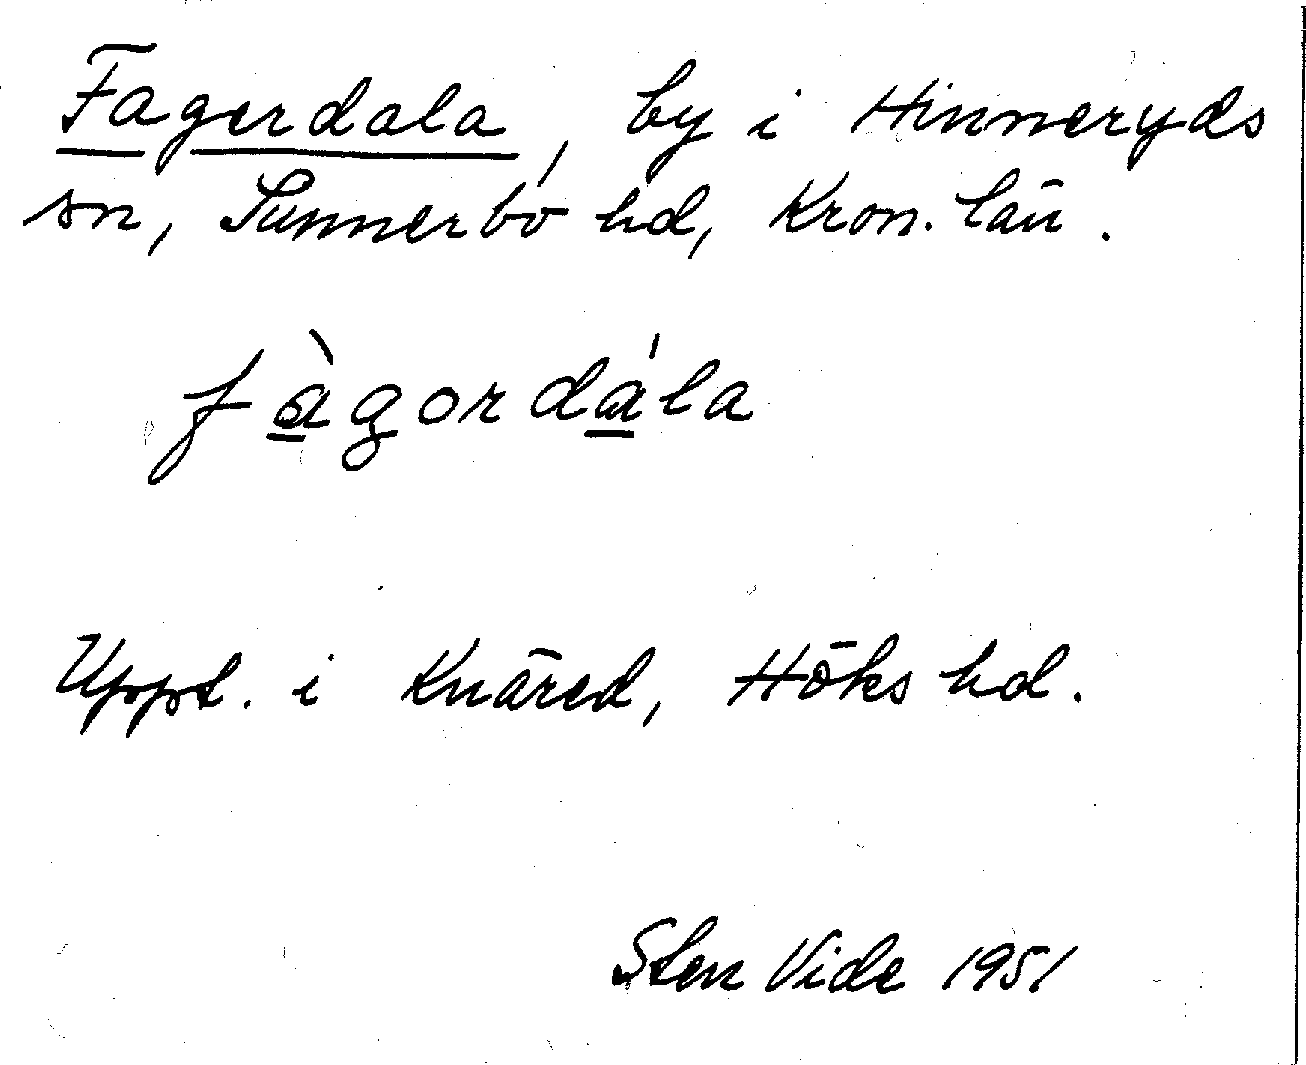 Fagerdala, by i Hinneryds
sn, Sunnerbo hd, Kron. län.
fàgordála
Uppt. i Knäred, Höks hd.
Sten Vide 1951